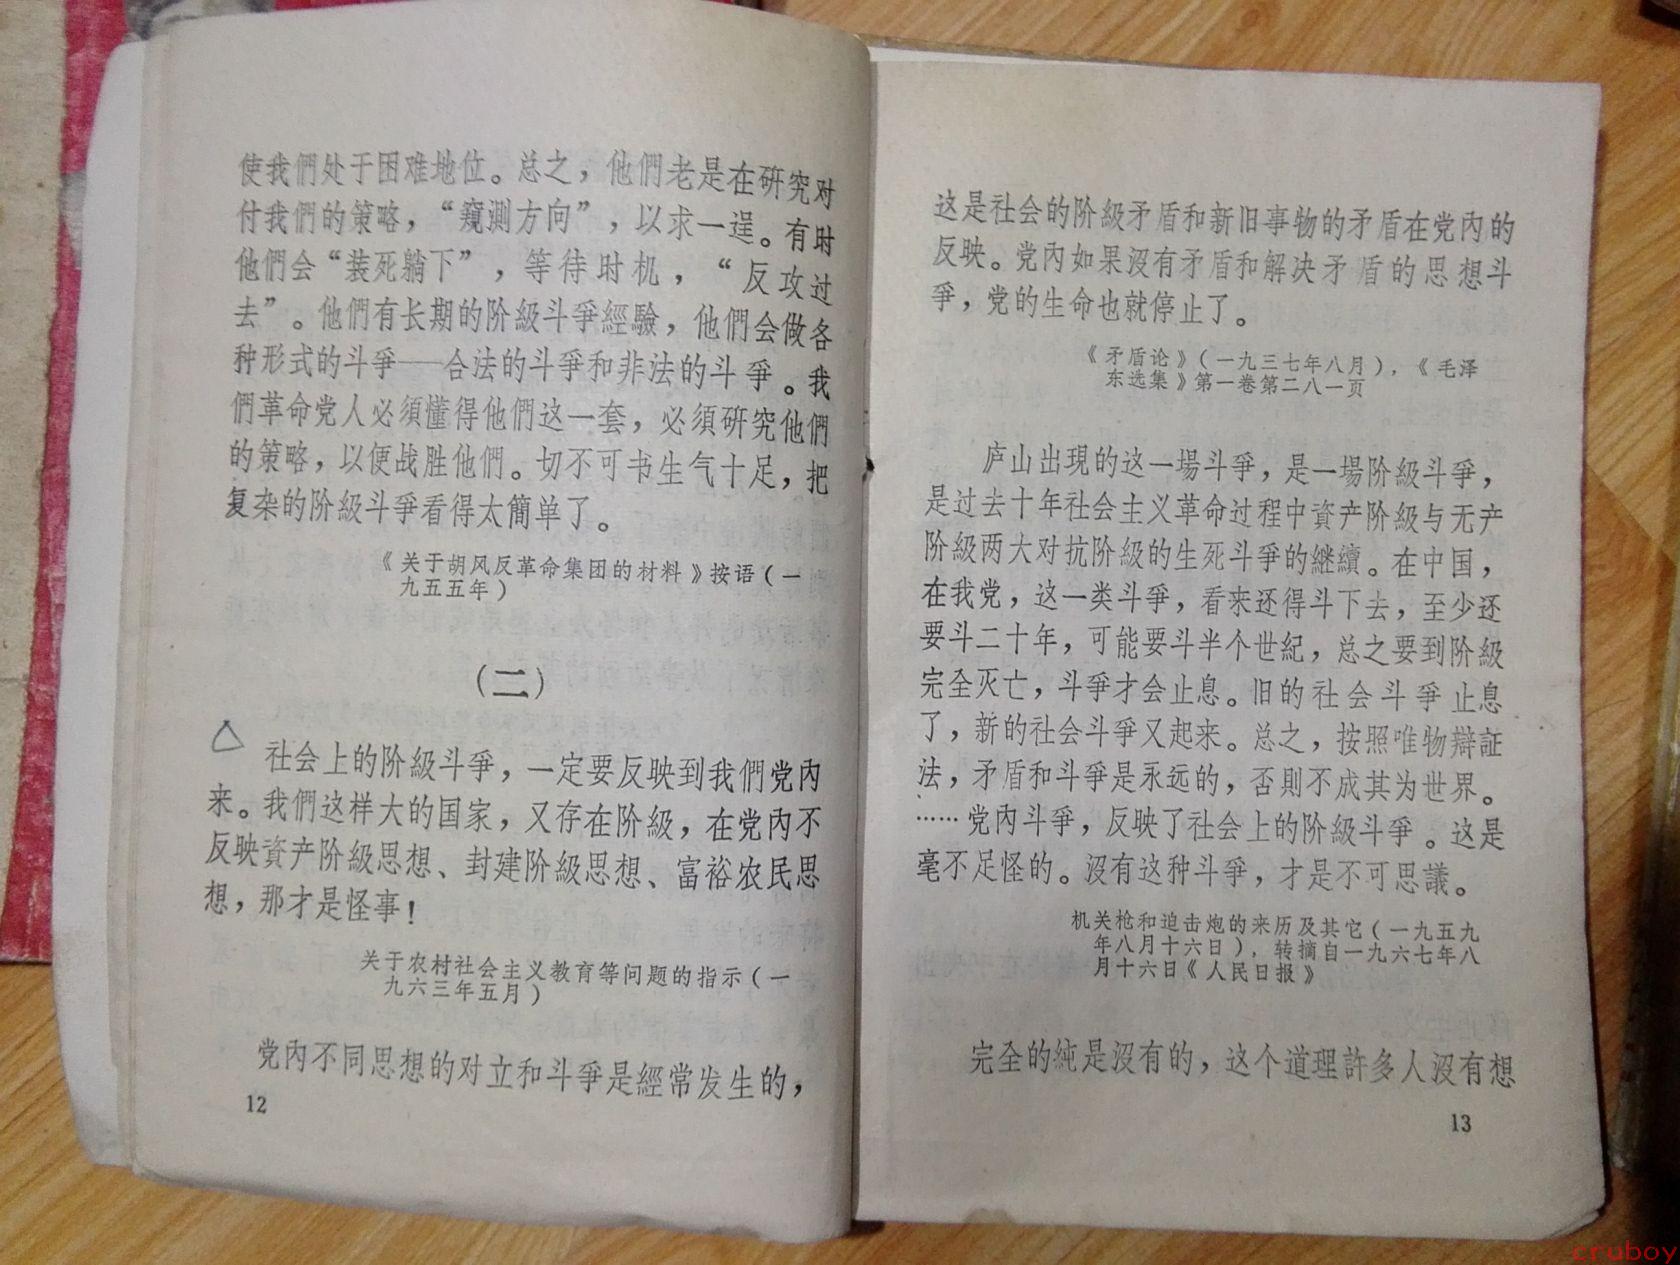 使我們处于困难地位。总之，他們老是在硏究对
付我們的策略，“窺測方向”，以求一逞。有时
他們会“装死躺下”，等待时机，“反攻过
去”。他們有长期的阶級斗爭經驗，他們会做各
种形式的斗爭——合法的斗爭和非法的斗爭。我
們革命党人必須懂得他們这一套，必須硏究他們
的策略，以便战胜他們。切不可书生气十足，把
复杂的阶級斗爭看得太簡单了。
《关于胡风反革命集团的材料》按语(一
九五五年)
(二)
社会上的阶級斗爭，一定要反映到我們党內
来。我們这样大的国家，又存在阶級，在党內不
反映資产阶級思想、封建阶級思想、富裕农民思
想，那才是怪事!
关于农村社会主义教育等问题的指示(一
九六三年五月)
党內不同思想的对立和斗爭是經常发生的，
12
这是社会的阶級矛盾和新旧事物的矛盾在党內的
反映。党內如果沒有矛盾和解决矛盾的思想斗
爭，党的生命也就停止了。
《矛盾论》(一九三七年八月)，《毛泽
东选集》第一卷第二八一页
庐山出現的这一場斗爭，是一場阶級斗爭，
是过去十年社会主义革命过程中資产阶級与无产
阶級两大对抗阶級的生死斗爭的継續。在中国，
在我党，这一类斗爭，看来还得斗下去，至少还
要斗二十年，可能要斗半个世紀，总之要到阶級
完全灭亡，斗爭才会止息。旧的社会斗爭止息
了，新的社会斗爭又起来。总之，按照唯物辯証
法，矛盾和斗爭是永远的，否則不成其为世界。
……党內斗爭，反映了社会上的阶級斗爭。这是
毫不足怪的。沒有这种斗爭，才是不可思議。
机关枪和迫击炮的来历及其它(一九五九
年八月十六日)，转摘自一九六七年八
月十六日《人民日报》
完全的純是沒有的，这个道理許多人沒有想
13
cruboy